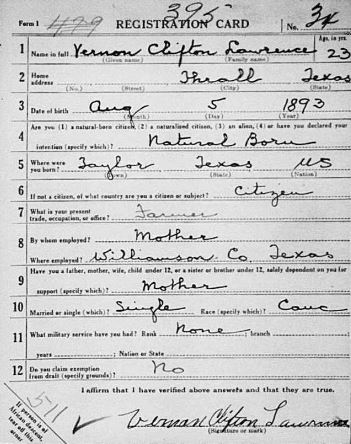 395
Form 1 499 REGISTRATION CARD No. 34
1 Name in full Vernon Clifton Lawrence Age, in yrs. 23
(Given name) (Family name)
2 Home address Thrall Texas
(No.) (Street) (City) (State)
3 Date of birth Aug 5 1893
(Month) (Day) (Year)
4 Are you (1) a natural-born citizen, (2) a naturalized citizen, (3) an alien, (4) or have you declared your
intention (specify which)? Natural Born
5 Where were you born? Taylor Texas US
(Town) (State) (Nation)
6 If not a citizen, of what country are you a citizen or subject? Citizen
7 What is your present trade, occupation, or office? Farmer
8 By whom employed? Mother
Where employed? Williamson Co. Texas
9 Have you a father, mother, wife, child under 12, or a sister or brother under 12, solely dependent on you for
support (specify which)? Mother
10 Married or single (which)? Single Race (specify which)? Cauc
11 What military service have you had? Rank None ; branch
years ; Nation or State
12 Do you claim exemption from draft (specify grounds)? No
I affirm that I have verified above answers and that they are true.
511
If person is of African descent, tear off this corner.
Vernon Clifton Lawrence
(Signature or mark)